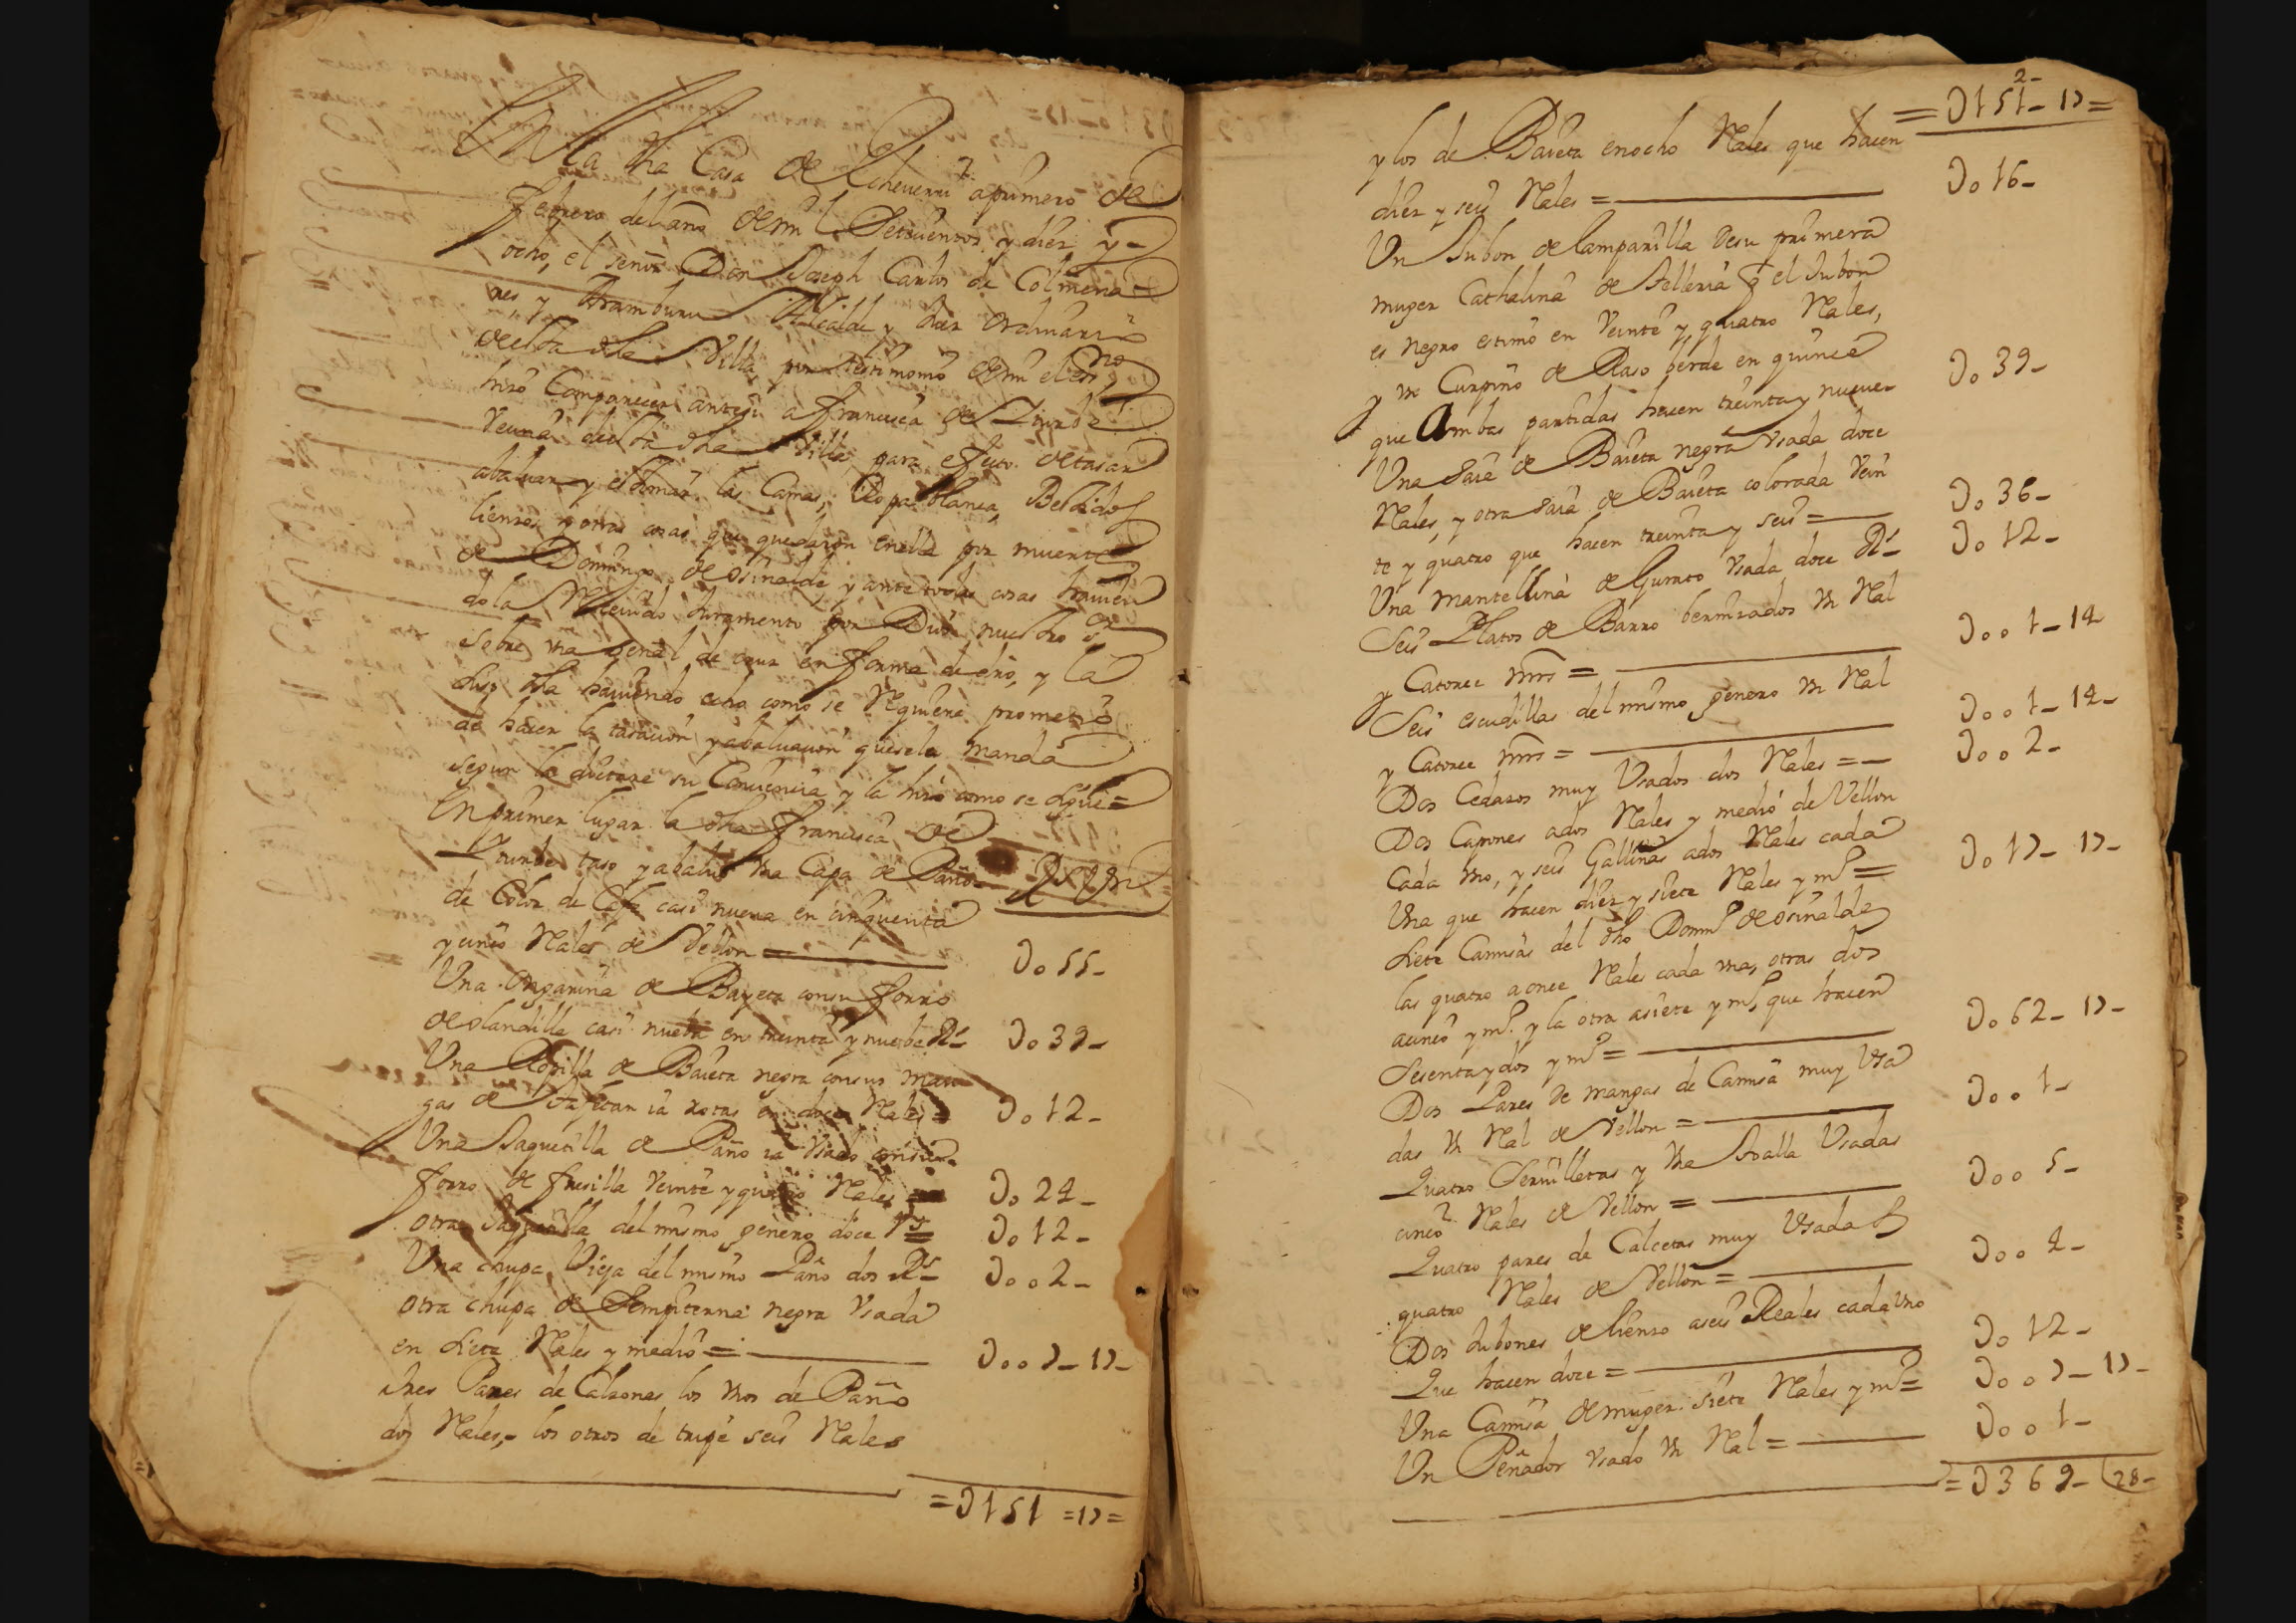 En la dha Casa de Echeverri a primero de
febrero del año de mil Setecientos y diez y
ocho, el señor Don Joseph Carlos de Colmena
res, y Aramburu Alcalde y Juez ordinario
de esta dha Villa por testimonio de mi el essno
hizo Comparecer antesi a francisca de
Vecina de esta dha Villa para efecto de tasar
abaluar y estimar las Camas, Ropa blanca, Bestidos
lienzos y otras cosas que quedaron en ella por muerte
de Domingo de osinalde, y ante todas cosas havien
dola Recivido Juramento por Dios nuestro Sr
sobre una señal de cruz en forma de dro, y la
suso dha haviendo echo como se Requiere prometio
de hacer la tasacion y abaluacion que se le manda
segun la dictare su Conciencia y la hizo como se sigue=
En primer lugar la dha francisca de
taso y abaluo una Capa de Paño
de Color de Cafe casi nueva en cinquenta
y cinco Rales de Vellon = Do 55-
Una Ongarina de Bayeta con su forro
de olandilla casi nueba en treinta y nuebe Rs Do 39-
Una Ropilla de Baieta negra con sus man
gas de tafetan ia rotas en doce Rales = Do 12-
Una Saquetilla de Paño ia usado con su
forro de frisilla veinte y quatro Rales = Do 24-
otra Saquetilla del mismo genero doce rs = Do 12-
Una chupa Vieja del mismo Paño dos Rs Doo 2-
otra chupa de Sempiterna negra usada
en siete Rales y medio = Doo 7-17-
tres Pares de Calzones los unos de Paño
dos Rales,- los otros de tripe seis Rales
=D151=17=
2-
=D151-17=
y los de Baieta en ocho Rales que hacen
diez y seis Rales = Do 16-
Un Jubon de lamparilla de su primera
muger Cathalina de Alleria y el Jubon
es negro estimo en veinte y quatro Rales,
y un Curpiño de Raso berde en quince
que Ambas partidas hacen treinta y nueve- Do 39-
Una Saia de Baieta negra usada doce
Rales, y otra saia de Baieta colorada vein
te y quatro que hacen treinta y seis = Do 36-
Una mantellina de usada doce Rs Do 12-
Seis Platos de Barro bernizados un Ral
y Catorce mrs = Doo 1-14
Seis escudillas del mismo genero un Ral
y Catorce mrs = Doo 1-14-
Dos Cedazos muy Usados dos Rales = Doo 2-
Dos Capones a dos Rales y medio de Vellon
Cada uno, y seis Gallinas a dos Rales cada
Una que hacen diez y siete Rales y mo = Do 17-17-
Siete Camisas del dho Domo de osinalde
las quatro a once Rales cada una, otras dos
a cinco y mo. y la otra a siete y mo, que hacen
Sesenta y dos y mo = Do 62-17-
Dos Pares de mangas de Camisa muy Usa
das un Ral de Vellon = Doo 1-
Quatro Servilletas y una toalla Usadas
cinco Rales de Vellon = Doo 5-
Quatro pares de Calcetas muy Usadas
quatro Rales de Vellon = Doo 4-
Dos Jubones de lienzo a seis Reales cada uno
Que hacen doce = Do 12-
Una Camisa de muger siete Rales y mo = Doo 7-17-
Un Peñador usado un Ral = Doo 1-
=D369-28-